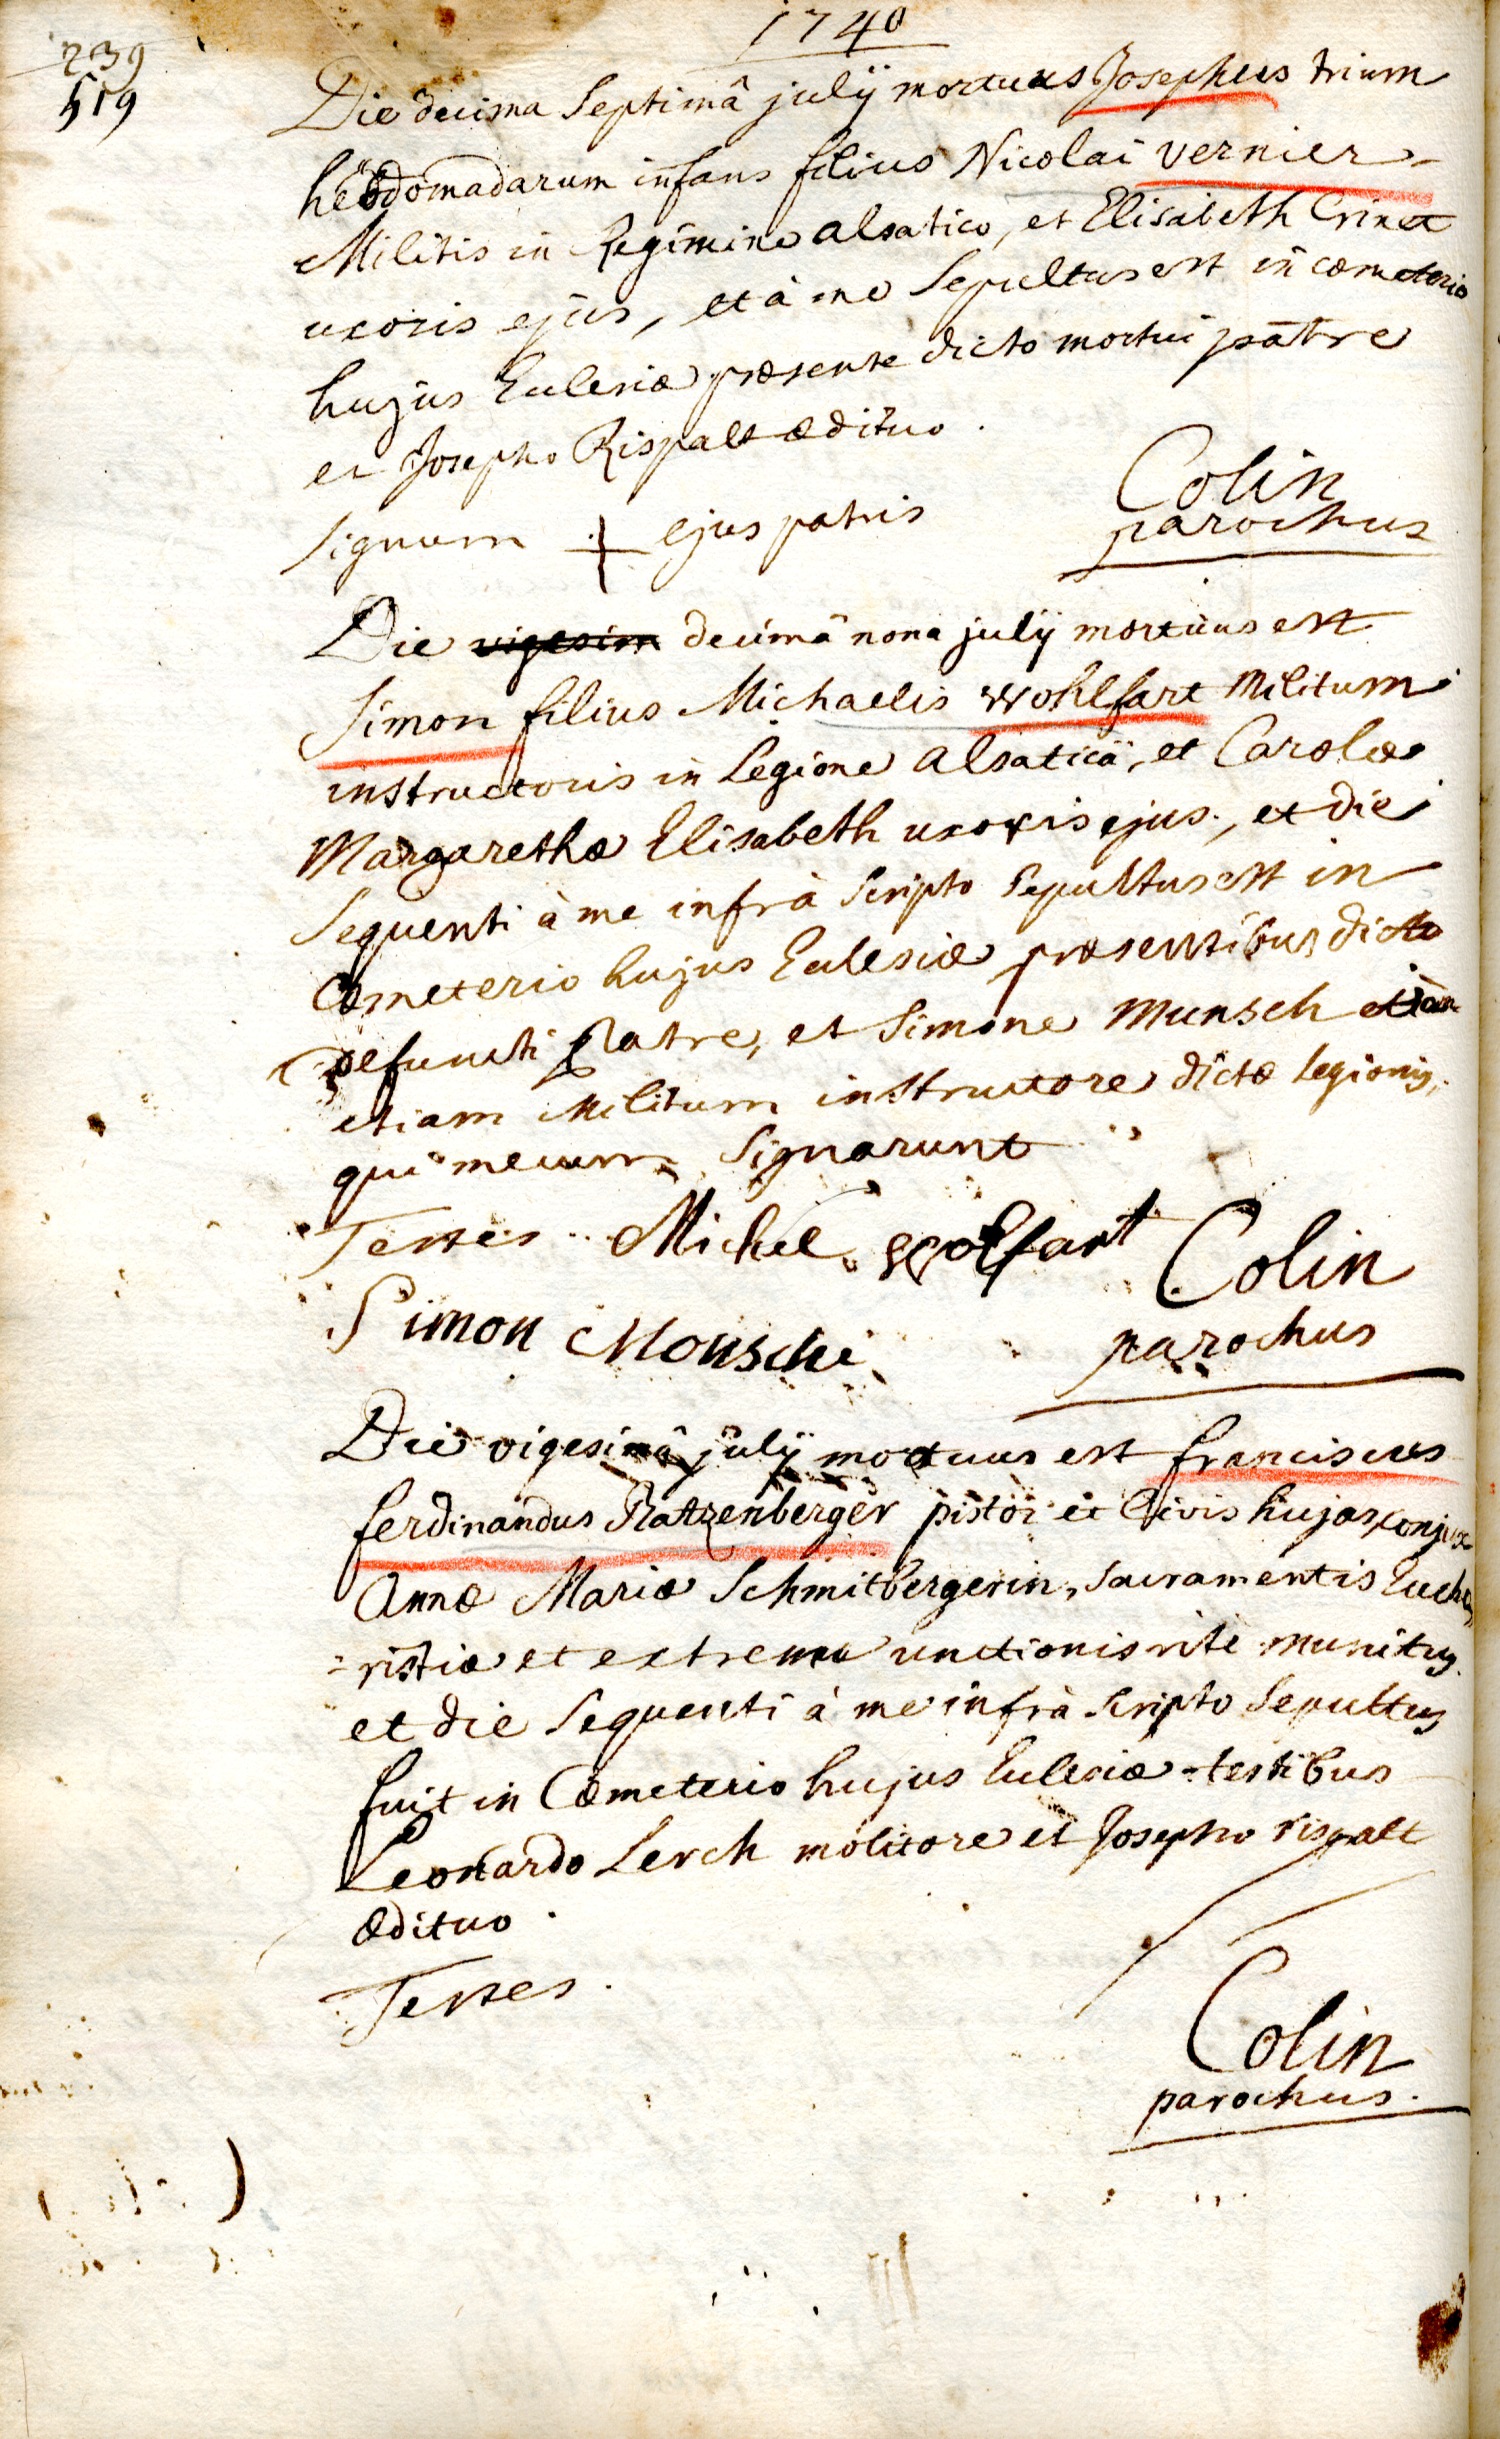 1740
239
519
Die decima Septimâ julÿ mortuus Josephus trium
hebdomadarum infans filius Nicolai vernier
Militis in Regimine alsatico, et Elisabeth Crinet
uxoris ejus, et à me Sepultus est in cœmeterio
hujus Ecclesiæ præsente dicto mortui patre
et Josepho Rispalt ædituo.
Signum + ejus patris
Colin
parochus
Die vigesim decimâ nona julÿ mortuus est
Simon filius Michaelis Wohlfart Militum
instructoris in Legione alsaticâ, et Carolæ
Margarethæ Elisabeth uxoris ejus., et die
Sequenti à me infrà Scripto Sepultus est in
Cœmeterio hujus Ecclesiæ præsentibus dicto
defuncti Patre, et Simone Munsch etiam
etiam Militum instructore dictæ Legionis,
qui mecum Signarunt
Testes Michel Wolfart
Colin
Simon Monschi
parochus
Die vigesimâ julÿ mortuus est franciscus
ferdinandus Ratzenberger pistor et Civis hujas, conjux
Annæ Mariæ Schmitbergerin, Sacramentis Eucha
=ristiæ et extremæ unctionis rite munitus
et die Sequenti à me infrà Scripto Sepultus
fuit in Cœmeterio hujus Ecclesiæ testibus
Leonardo Lerch molitore et Josepho rispalt
ædituo.
Testes.
Colin
parochus.